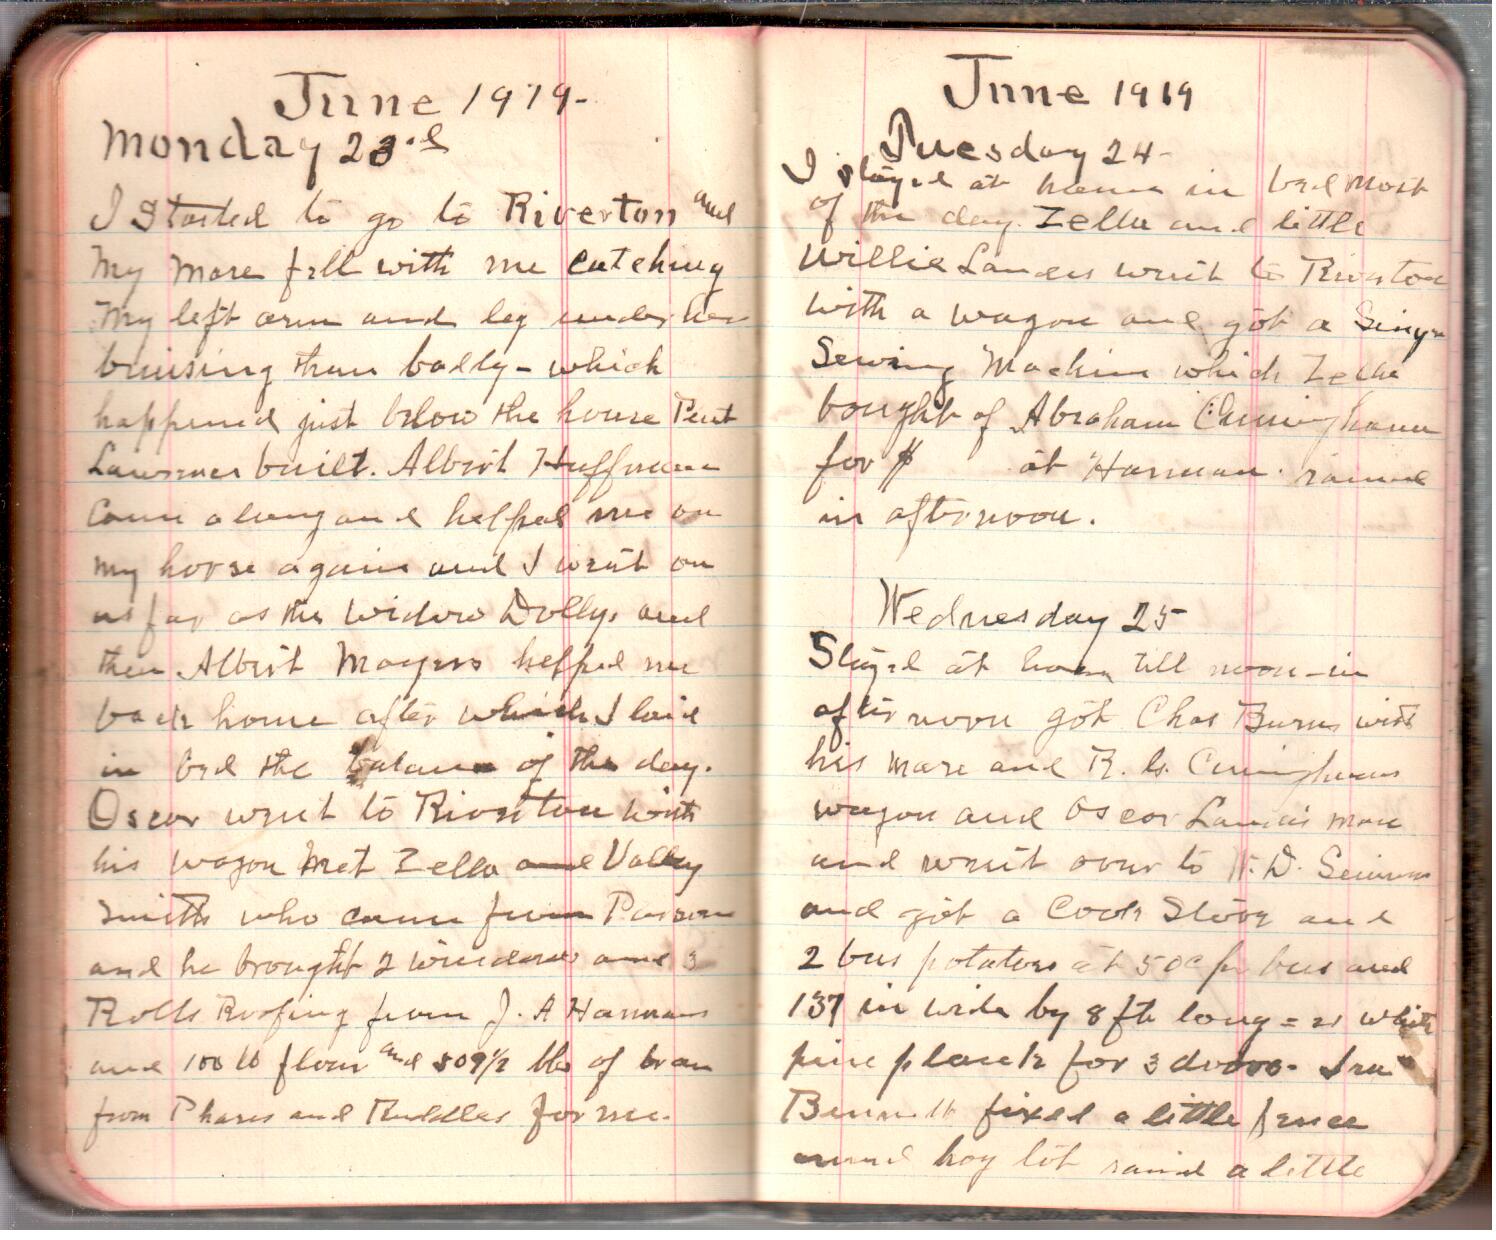 June 1919-
Monday 23rd
I Started to go to Riverton and
My Mare fell with me catching
My left arm and leg under her
bruising them badly - which
happened just below the house
built. Albert Huffman
Came along and helped me on
my horse again and I went on
as far as the Widow Dollys and
then Albert Mayers helped me
back home after which I laid
in bed the balance of the day.
Oscar went to Riverton with
his wagon Met Zella and Valley
Smith who came from Parsons
and he brought 2 windows and 3
Rolls Roofing from J. A Harman
and 100 lb flour and 109½ lbs of bran
from Phares and Ruddles for me.
June 1919
Tuesday 24-
I stayed at home in bed most
of the day. Zella and little
Willie Landes went to Riverton
with a wagon and got a Singer
Sewing Machine which Zella
bought of Abraham Cunningham
for $ at Harman. rained
in afternoon.
Wednesday 25
Stayed at home till noon - in
afternoon got Chas Burns with
his mare and R. G. Cuninghams
wagon and Oscar Landis mare
and went over to W. D.
and got a Cook Stove and
2 bus potatoes at 50c pr bus and
137 in wide by 8 ft long = 21 white
pine plank for 3 doors - Ira
Bennett fixed a little fence
hog lot rained a little